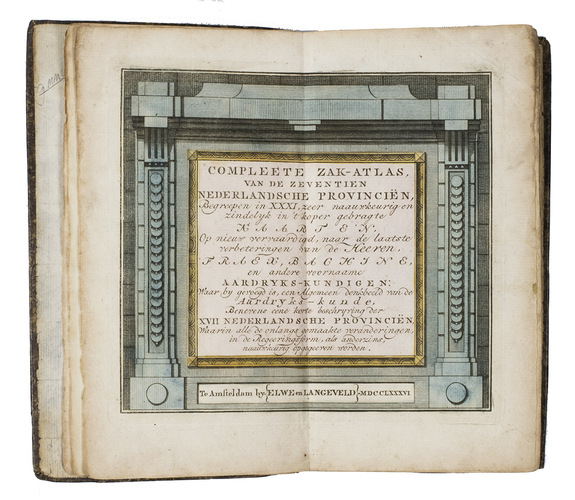 COMPLEETE ZAK-ATLAS,
VAN DE ZEVENTIEN
NEDERLANDSCHE PROVINCIËN,
Begreepen in XXXI, zeer naauwkeurig en
zindelyk in 't koper gebragte
KAARTEN.
Op nieuw vervaardigd, naar de laatste
verbeteringen van de Heeren,
FRAEX, BACHINE,
en andere voornaame
AARDRYKS-KUNDIGEN:
Waar by gevoegd is, een Algemeen denkbeeld van de
Aardryks-kunde,
Benevens eene korte beschryving der
XVII NEDERLANDSCHE PROVINCIËN,
Waarin alle de onlangs gemaakte veränderingen,
in de Regeeringsform, als anderzins,
naauwkeurig opgegeeven worden.
Te Amsteldam by ELWE en LANGEVELD MDCCLXXXVI